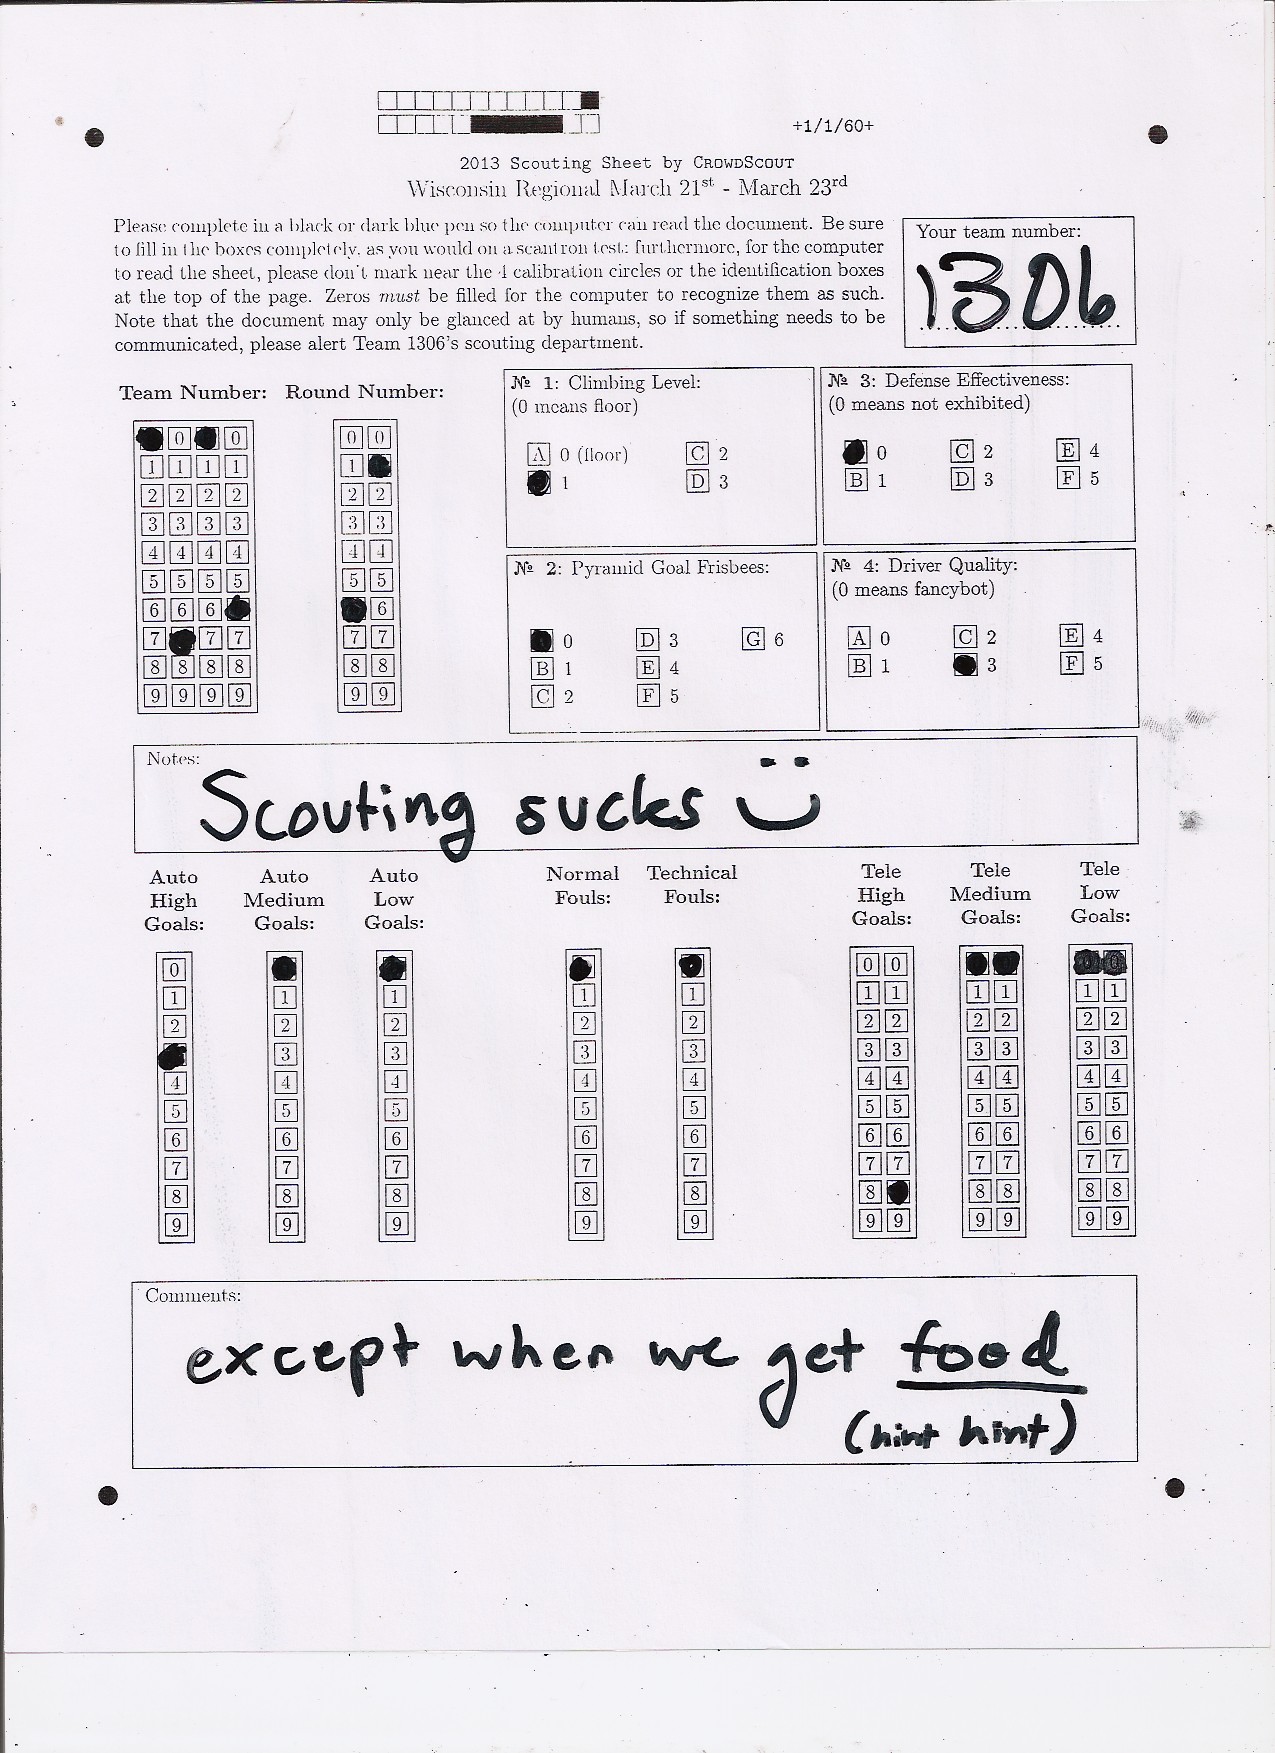 +1/1/60+
2013 Scouting Sheet by CROWDSCOUT
Wisconsin Regional March 21st - March 23rd
Please complete in a black or dark blue pen so the computer can read the document. Be sure
to fill in the boxes completely, as you would on a scantron test; furthermore, for the computer
to read the sheet, please don't mark near the 4 calibration circles or the identification boxes
at the top of the page. Zeros must be filled for the computer to recognize them as such.
Note that the document may only be glanced at by humans, so if something needs to be
communicated, please alert Team 1306's scouting department.
Your team number:
1306
Team Number: Round Number:
0 0 0 0
1 1 1 1 1
2 2 2 2 2 2
3 3 3 3 3 3
4 4 4 4 4 4
5 5 5 5 5 5
6 6 6 6
7 7 7 7 7
8 8 8 8 8 8
9 9 9 9 9 9
№ 1: Climbing Level:
(0 means floor)
A 0 (floor) C 2
1 D 3
№ 3: Defense Effectiveness:
(0 means not exhibited)
0 C 2 E 4
B 1 D 3 F 5
№ 2: Pyramid Goal Frisbees:
0 D 3 G 6
B 1 E 4
C 2 F 5
№ 4: Driver Quality:
(0 means fancybot)
A 0 C 2 E 4
B 1 3 F 5
Notes:
Scouting sucks
Auto High Goals: Auto Medium Goals: Auto Low Goals: Normal Fouls: Technical Fouls: Tele High Goals: Tele Medium Goals: Tele Low Goals:
0 0 0 0 0
1 1 1 1 1 1 1 1 1 1 1
2 2 2 2 2 2 2 2 2 2 2
3 3 3 3 3 3 3 3 3 3
4 4 4 4 4 4 4 4 4 4 4
5 5 5 5 5 5 5 5 5 5 5
6 6 6 6 6 6 6 6 6 6 6
7 7 7 7 7 7 7 7 7 7 7
8 8 8 8 8 8 8 8 8 8
9 9 9 9 9 9 9 9 9 9 9
Comments:
except when we get food
(hint hint)